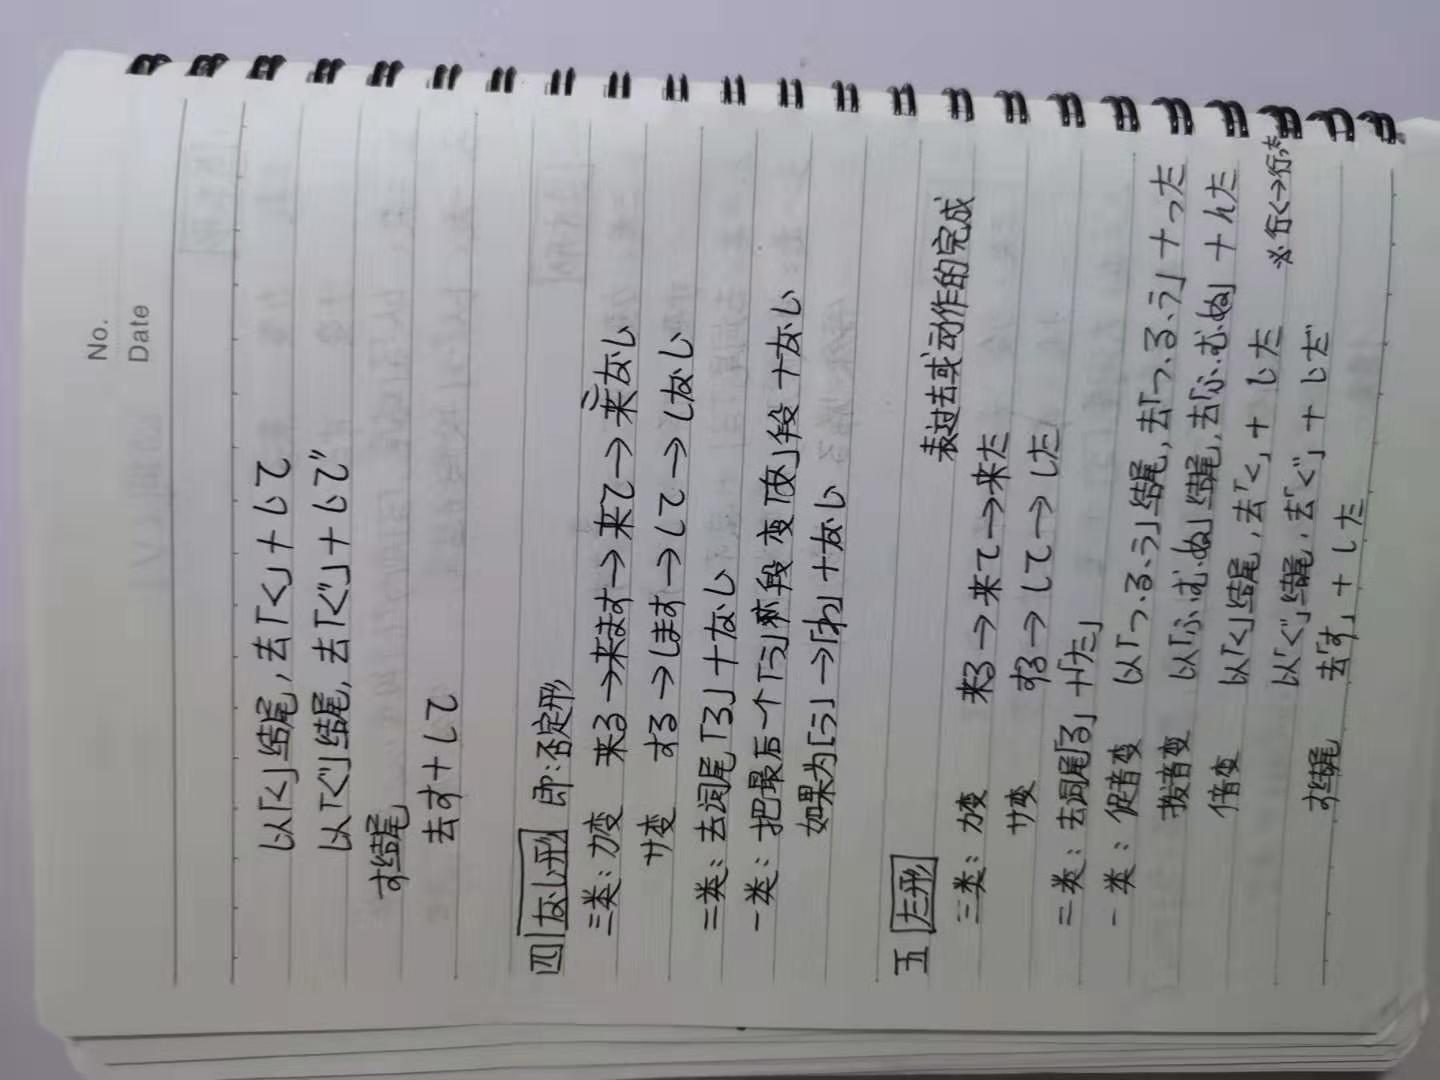 No.
Date
以「く」结尾,去「く」+いて
以「ぐ」结尾,去「ぐ」+いで
す结尾
去す+して
四 ない形 即:否定形
三类: カ变 来る→来ます→来て→来ない
サ变 する→します→して→しない
二类: 去词尾「る」+ない
一类: 把最后一个「う」段变「あ」段+ない
如果为「う」→「わ」+ない
五 た形 表过去或动作的完成
三类: カ变 来る→来て→来た
サ变 する→して→した
二类: 去词尾「る」+「た」
一类: 促音变 以「つ、る、う」结尾,去「つ、る、う」+った
拨音变 以「ぶ、む、ぬ」结尾,去「ぶ、む、ぬ」+んだ
倍音变 以「く」结尾,去「く」+いた ※行く→行った
以「ぐ」结尾,去「ぐ」+いだ
す结尾 去「す」+した